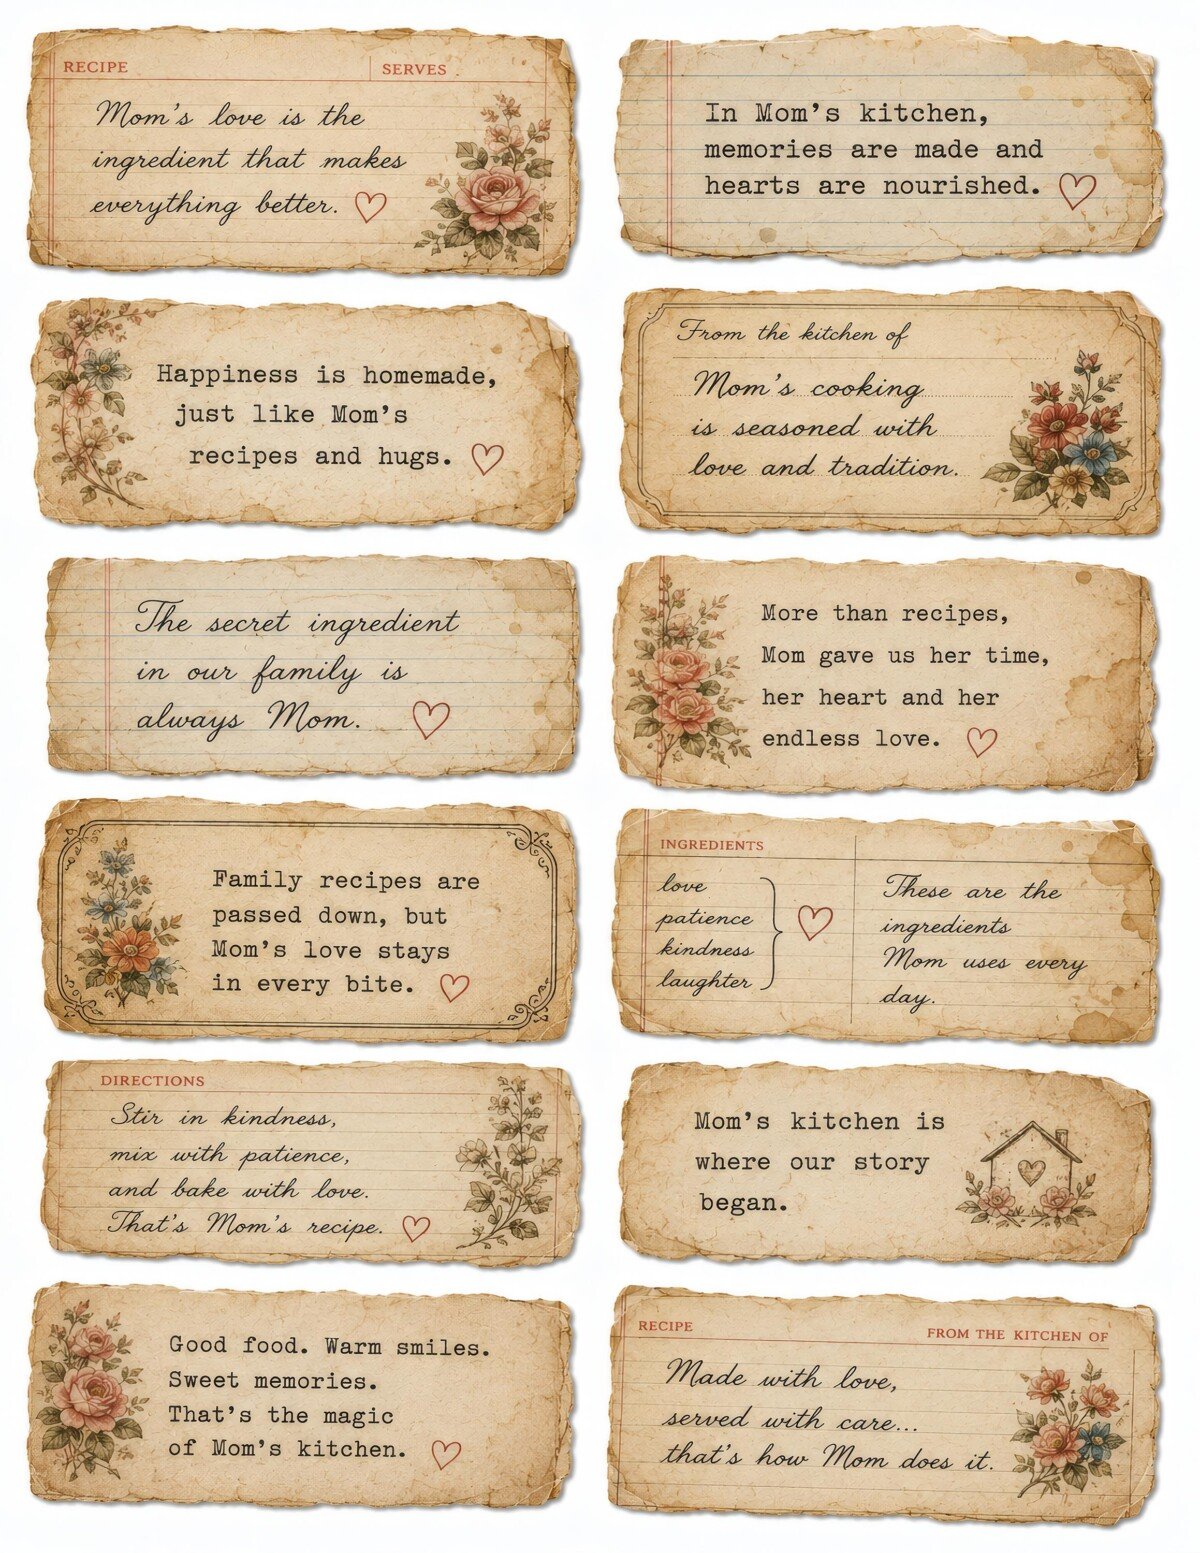 RECIPE SERVES
Mom's love is the
ingredient that makes
everything better.
In Mom's kitchen,
memories are made and
hearts are nourished.
Happiness is homemade,
just like Mom's
recipes and hugs.
From the kitchen of
Mom's cooking
is seasoned with
love and tradition.
The secret ingredient
in our family is
always Mom.
More than recipes,
Mom gave us her time,
her heart and her
endless love.
Family recipes are
passed down, but
Mom's love stays
in every bite.
INGREDIENTS
love
patience
kindness
laughter
These are the
ingredients
Mom uses every
day.
DIRECTIONS
Stir in kindness,
mix with patience,
and bake with love.
That's Mom's recipe.
Mom's kitchen is
where our story
began.
Good food. Warm smiles.
Sweet memories.
That's the magic
of Mom's kitchen.
RECIPE FROM THE KITCHEN OF
Made with love,
served with care...
that's how Mom does it.